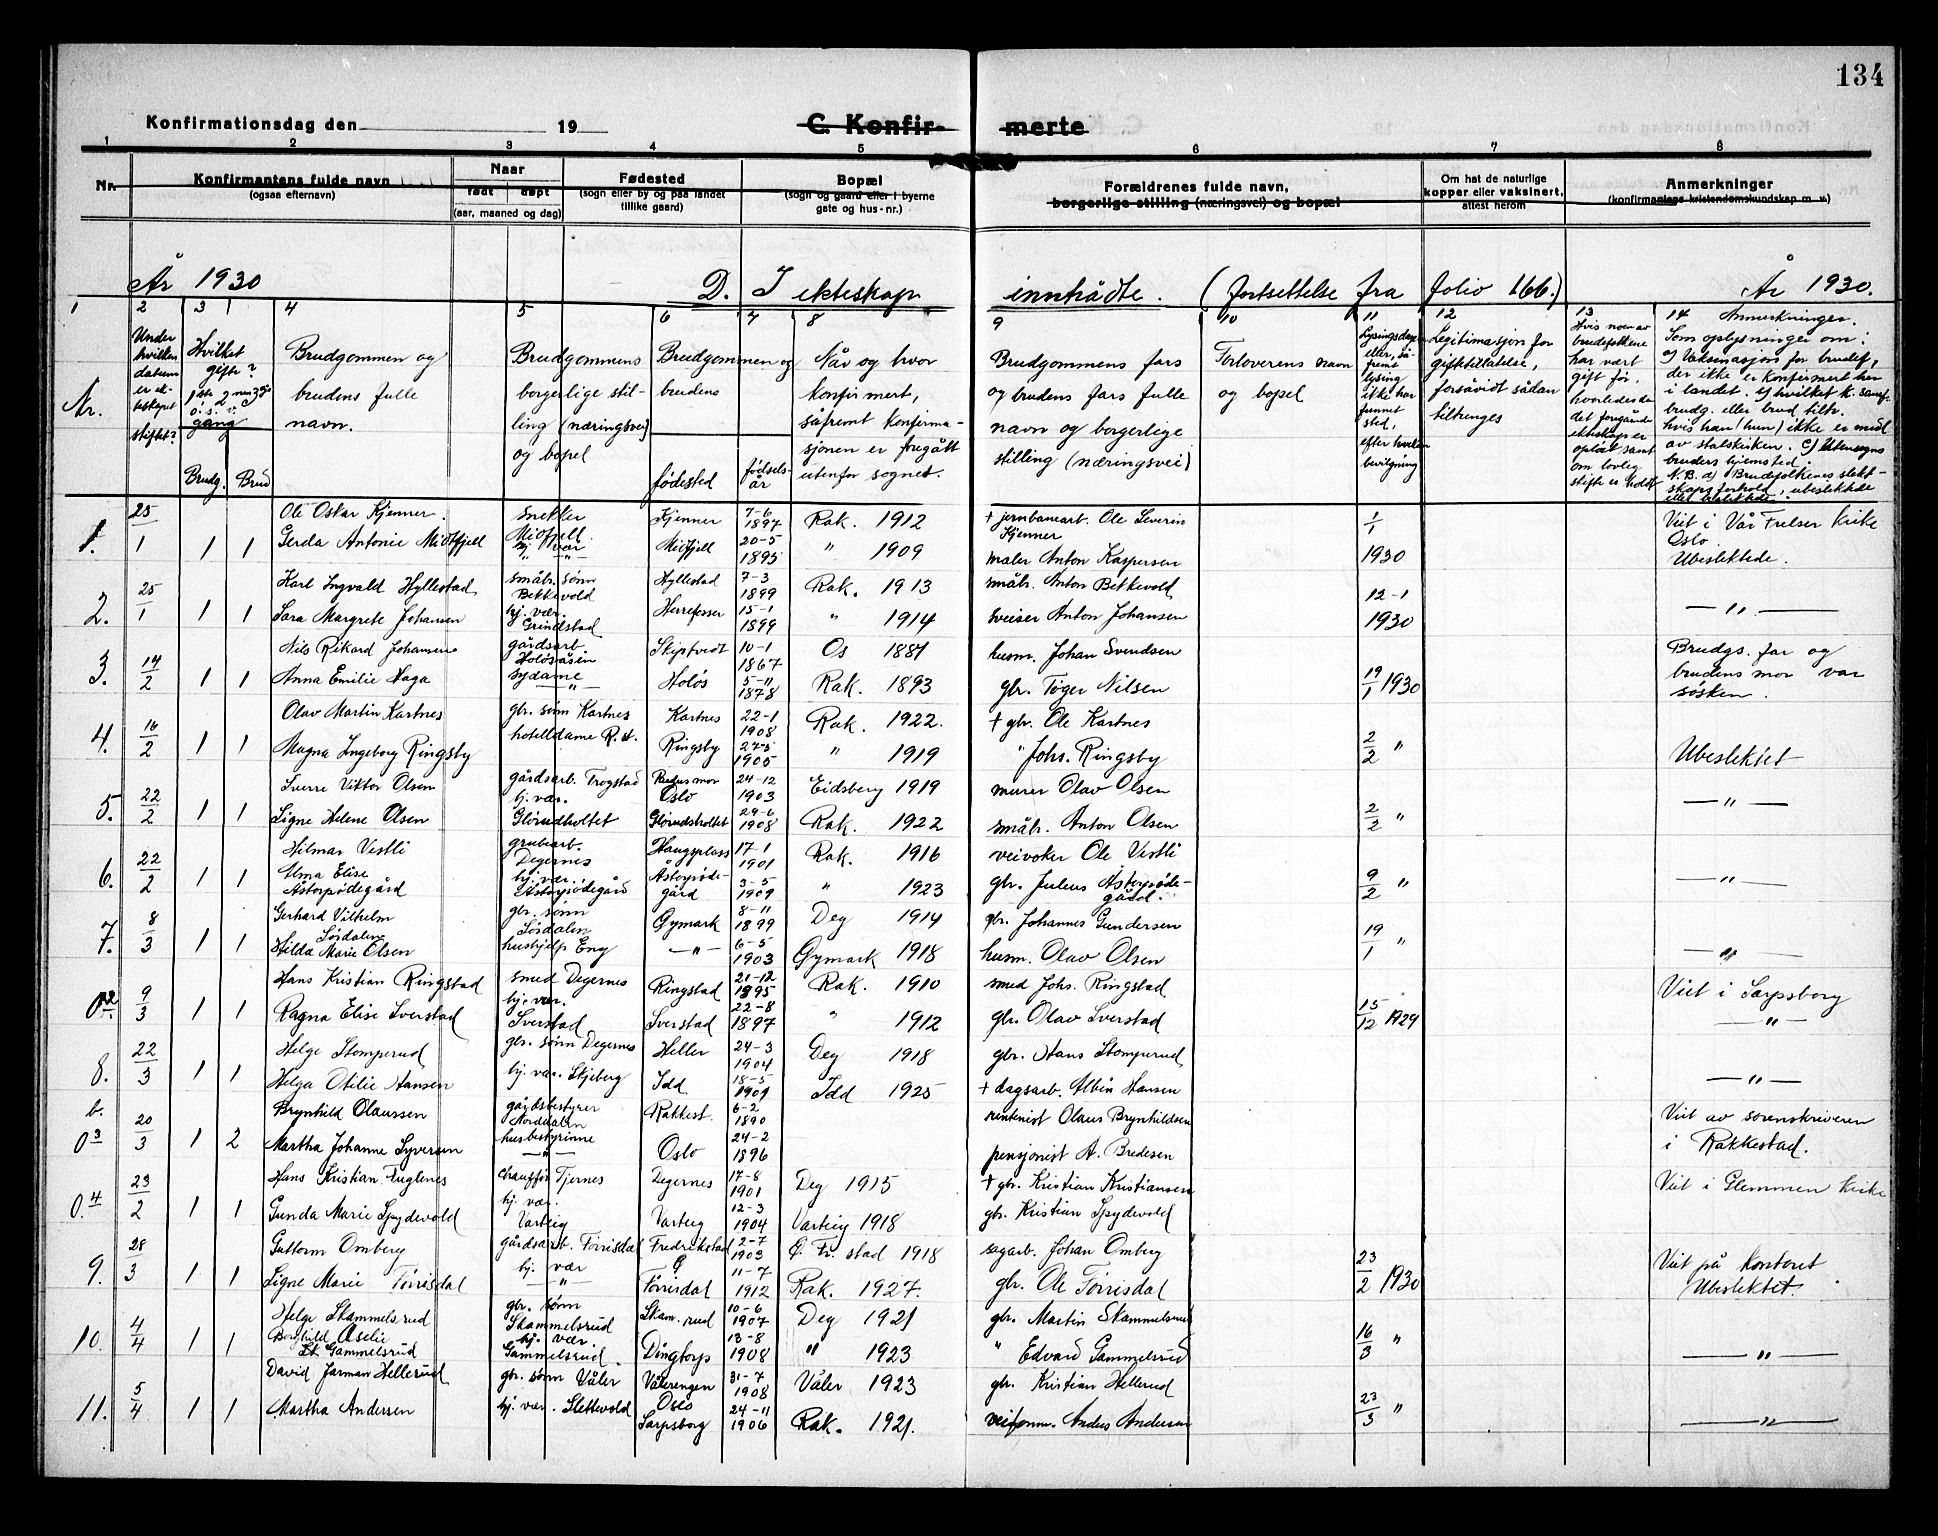 134
Konfirmationsdag den 19
C. Konfir- merte
1 2 3 4 5 6 7 8
Nr.
Konfirmantens fulde navn
(ogsaa efternavn)
Naar
født døpt
(aar, maaned og dag)
Fødested
(sogn eller by og paa landet
tillike gaard)
Bopæl
(sogn og gaard eller i byerne
gate og hus-nr.)
Forældrenes fulde navn,
borgerlige stilling (næringsvei) og bopæl
Om hat de naturlige
kopper eller vaksinert,
attest herom
Anmerkninger
(konfirmantens kristendomskundskap m. v.)
År 1930 D. I ekteskap inntrådte. (fortsettelse fra folio 166.) År 1930.
1 2 3 4 5 6 7 8 9 10 11 12 13 14
Nr.
Under
hvilken
datum
er ek-
teskapet
stiftet?
Hvilket
gifte?
1ste 2net 3dje
o.s.v.
gang
Brudg. Brud
Brudgommen og
brudens fulle
navn.
Brudgommens
borgerlige stil-
ling (næringsvei)
og bopel
Brudgommen og
brudens
fødested
fødsels-
år
Når og hvor
konfirmert,
såfremt konfirma-
sjonen er foregått
utenfor sognet.
Brudgommens fars
og brudens fars fulle
navn og borgerlige
stilling (næringsvei)
Forloverens navn
og bopel
Lysingsdagen
eller, så-
fremt
lysing
ikke har
funnet
sted,
efter hvilken
bevilgning
Legitimasjon for
gifttillatelse,
forsåvidt sådan
tiltrenges
Hvis noen av
brudefolkene
har vært
gift før,
hvorledes da
det foregående
ekteskap er
opløst samt
om lovlig
skifte er holdt
Anmerkninger.
Som oplysninger om:
a) Vaksinasjon for brudef.,
der ikke er konfirmert her
i landet. b) hvilket k. samf.
brudg. eller brud tilh.
hvis han (hun) ikke er medl.
av statskirken. c) Utensogns
bruders hjemsted.
N.B. d) Brudefolkenes slekt-
skapsforhold, ubeslektede
eller beslektede.
1. 25/1 1 1 Ole Oskar Kjenner. snekker Midtfjell. Kjenner 7-6 1897 Rak. 1912 + jernbanearb. Ole Severin Kjenner 1/1 1930 Viet i Vår Frelser kirke Oslo
Gerda Antonie Midtfjell hj. vær " Midtfjell 20-5 1895 " 1909 maler Anton Kaspersen Ubeslektede.
2. 25/1 1 1 Karl Ingvald Hyllestad småbr. sønn Bekkevold Hyllestad 7-3 1899 Rak. 1913 småbr. Anton Bekkevold 12-1 1930 — " —
Sara Margrete Johansen hj. vær. Grindstad Herrefosser 15-1 1899 " 1914 sveiser Anton Johansen
3. 14/2 1 1 Nils Rikard Johansen gårdsarb. Holøsåsen Skiptvedt 10-1 1867 Os 1881 husm. Johan Svendsen 19/1 1930 Brudgs. far og
Anna Emilie Haga sydame — " — Holøs 5-11 1878 Rak. 1893 gbr. Tøger Nilsen brudens mor var søsken.
4. 16/2 1 1 Olav Martin Kartnes gbr. sønn Kartnes Kartnes 22-1 1908 Rak. 1922. + gbr. Ole Kartnes 2/2 " Ubeslektet
Magna Ingeborg Ringsby hotelldame R. st. Ringsby 27-5 1905 " 1919 " Johs. Ringsby
5. 22/2 1 1 Sverre Viktor Olsen gårdsarb. Trøgstad Oslo 24-12 1903 Eidsberg 1919 murer Olav Olsen 2/2 " — " —
Signe Helene Olsen hj. vær. Glørudholtet Glørudsholtet 29-6 1908 Rak. 1922 småbr. Anton Olsen
6. 22/2 1 1 Hilmar Vestli grubearb. Degernes Haugsplass 17-1 1901 Rak. 1916 veivoker Ole Vestli 9/2 " — " —
Alma Elise Åstorpødegård hj. vær. Åstorpødegård Åstorpødegård 3-5 1909 " 1923 gbr. Julius Åstorpødegård.
7. 8/3 1 1 Gerhard Vilhelm Sørdalen gbr. sønn Sørdalen Øymark 8-11 1899 Deg 1914 gbr. Johannes Gundersen 19/1 " — " —
Hilda Marie Olsen hushjelp Eng — " — 6-5 1903 Øymark 1918 husm. Olav Olsen
0.2 9/3 1 1 Hans Kristian Ringstad smed Degernes Ringstad 21-12 1895 Rak. 1910 smed Johs. Ringstad 15/12 1929 Viet i Sarpsborg
Ragna Elise Sverstad hj. vær. Sverstad Sverstad 22-8 1897 " 1912 gbr. Olav Sverstad — " —
8. 22/3 1 1 Helge Stomperud gbr. sønn Degernes Heller 24-3 1904 Deg 1918 gbr. Hans Stomperud — " —
Helga Otilie Hansen hj. vær. Skjeberg Idd 18-5 1909 Idd 1925 + dagsarb. Albin Hansen
b. 0 3 20/3 1 2 Brynhild Olaussen gårdsbestyrer Norddalen Rakkest. 6-2 1890 rentenist Olaus Brynhildsen Viet av sorenskriveren
Martha Johanne Syversen husbestyrinne — " — Oslo 24-2 1896 pensjonist A. Bredesen i Rakkestad.
0.4 23/2 1 1 Hans Kristian Fuglenes chauffør Tjernes Degernes 17-8 1901 Deg 1915 + gbr. Kristian Kristiansen Viet i Glemmen kirke
Gunda Marie Spydevold hj. vær. Varteig Varteig 12-3 1904 Varteig 1918 gbr. Kristian Spydevold
9. 28/3 1 1 Guttorm Omberg gårdsarb. Tørrisdal Fredrikstad Ø 2-7 1903 Ø. Fr. stad 1918 sagarb. Johan Omberg 23/2 1930 Viet på kontoret
Signe Marie Tørrisdal hj. vær — " — Tørrisdal 11-7 1912 Rak. 1927. gbr. Ole Tørrisdal Ubeslektet.
10. 4/4 1 1 Helge Skammelsrud gbr. sønn Skammelsrud Skam.rud 10-6 1907 Deg 1921 gbr. Martin Skammelsrud 16/3 " — " —
Borghild Aselie Gammelsrud hj. vær Gammelsrud. Dingtorp 13-8 1908 " 1923 " Edvard Gammelsrud
11. 5/4 1 1 David Jarman Hellerud gbr. sønn Våler Vålerengen Oslo 31-7 1908 Våler 1923 gbr. Kristian Hellerud 23/3 " — " —
Martha Andersen hj. vær. Slettevold Sarpsborg 24-11 1906 Rak. 1921. veiform. Anders Andersen